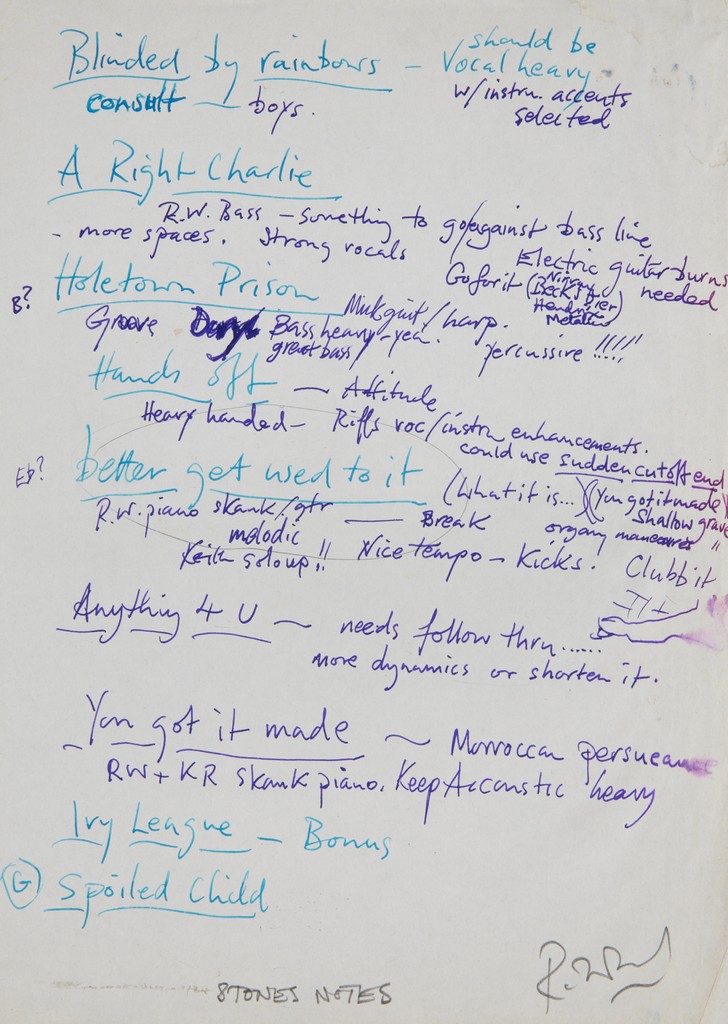 Blinded by rainbows – should be
Vocal heavy
consult — boys.
w/instru. accents
selected
A Right Charlie
R.W. Bass – something to go/against bass line
- more spaces. Strong vocals
Electric guitar burns
needed
Go for it
Holetown Prison
B?
Metallic
harp.
Groove Daryl Bass heavy – yea.
great bass
percussive !!!!!
Hands off – Attitude
Heavy handed – Riffs voc/instru enhancements.
could use sudden cutoff end
E♭?
better get used to it
(What it is...) (You got it made)
Shallow grave
R.W. piano skank/gtr — Break
melodic
organy
!!
Keith solo up!! Nice tempo – Kicks. Clubb it
Anything 4 U ~ needs follow thru......
more dynamics or shorten it.
You got it made ~ Morroccan persueance
RW + KR skank piano. Keep Accoustic heavy
Ivy League – Bonus
G Spoiled Child
STONES NOTES
R. Wood